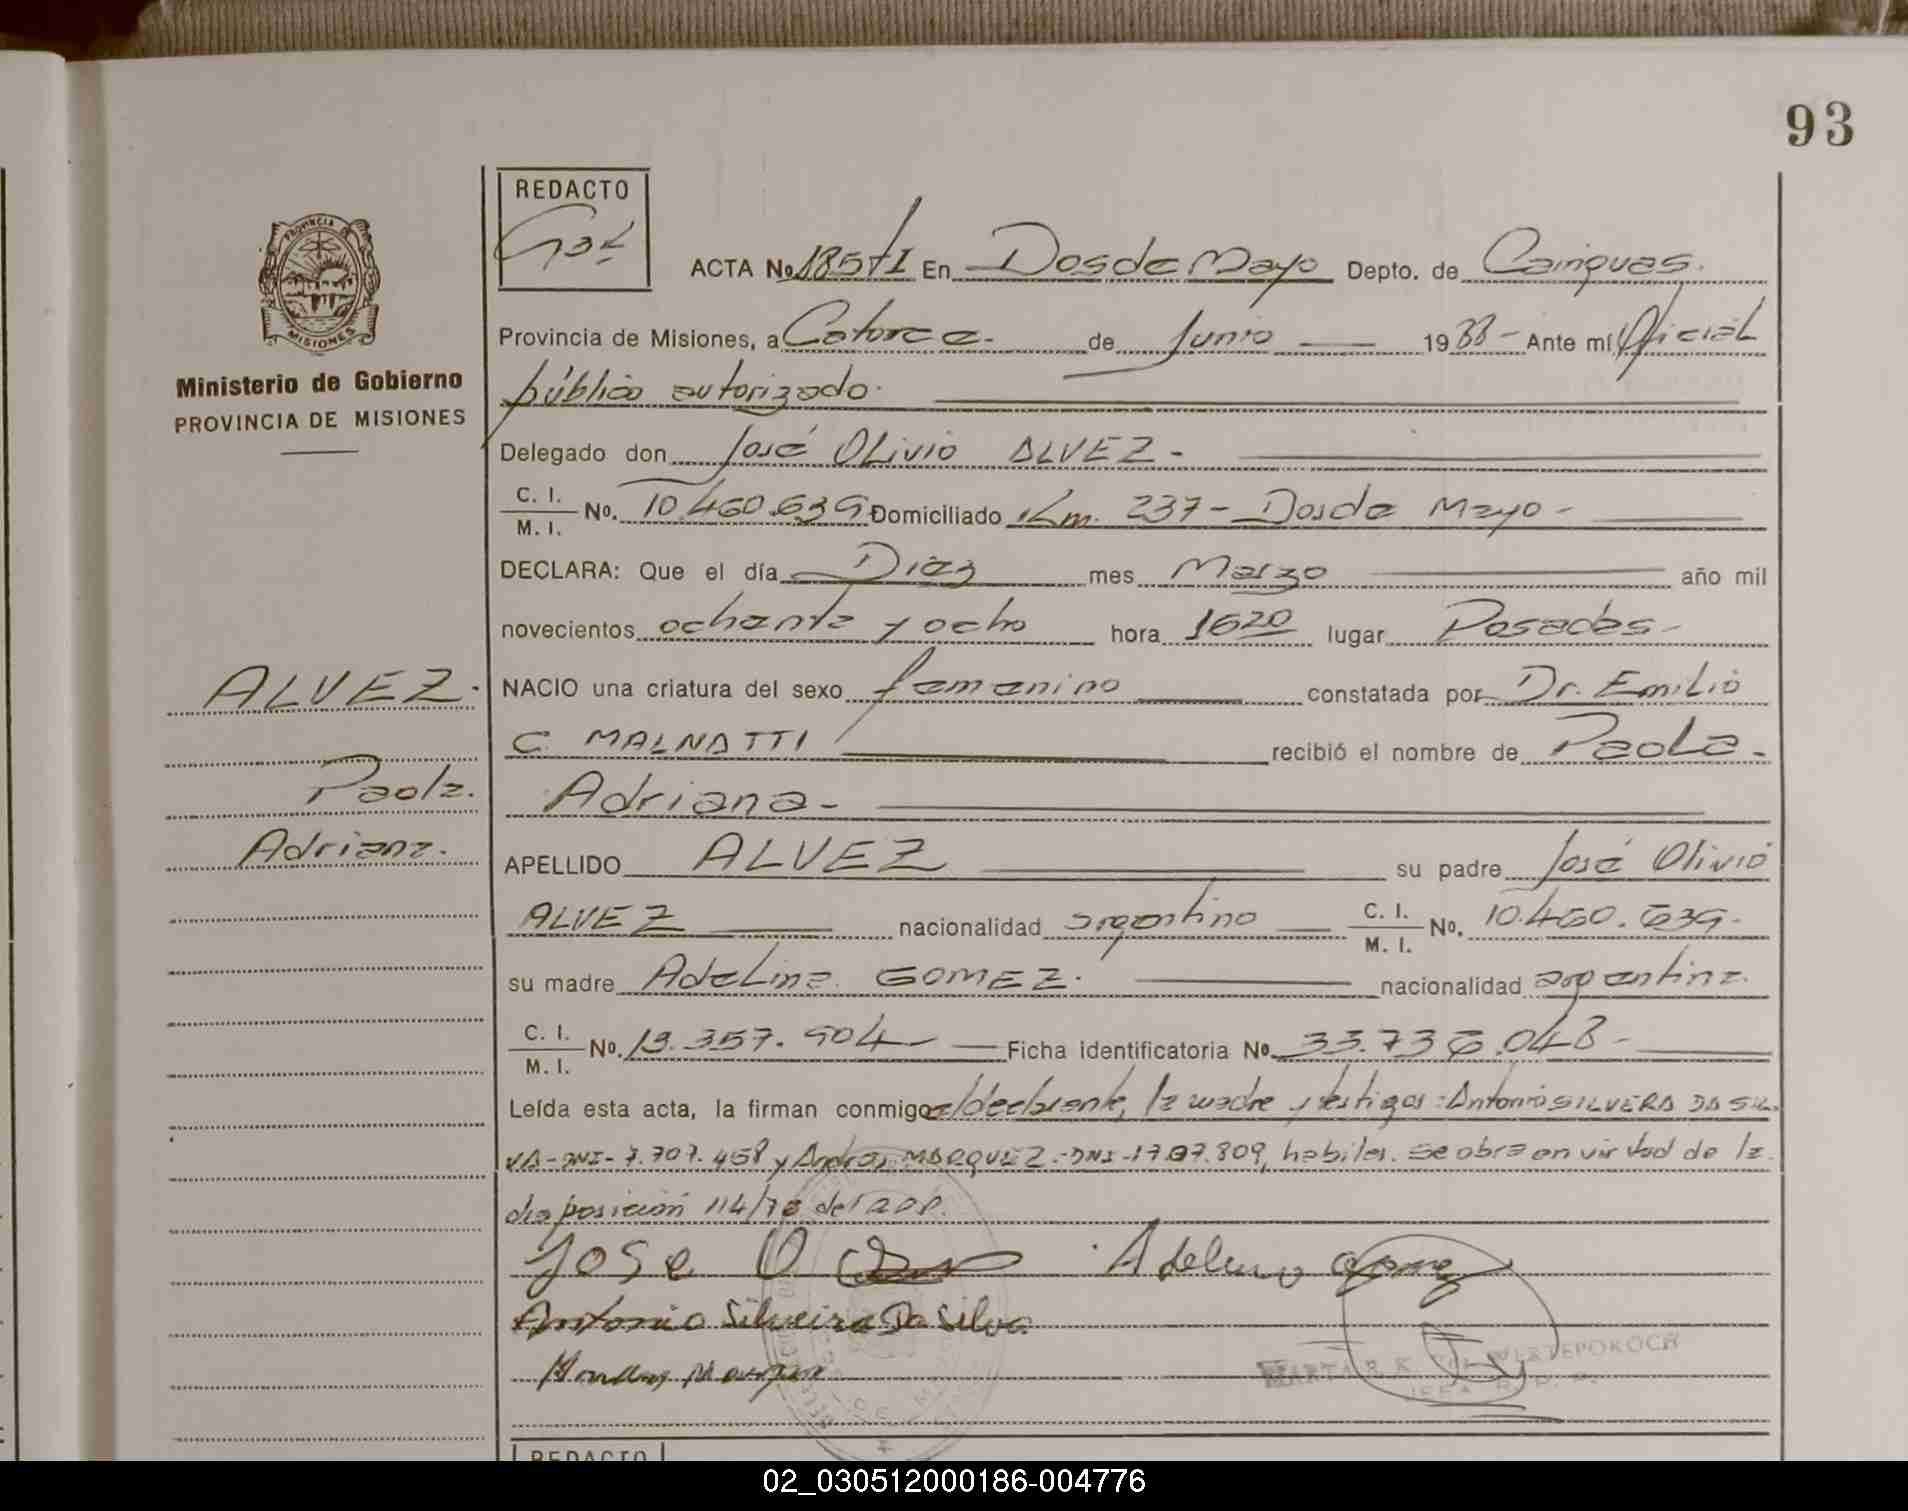 93
REDACTO
PROVINCIA
MISIONES
Ministerio de Gobierno
PROVINCIA DE MISIONES
ACTA No 185 t I En Dos de Mayo Depto. de Cainguas.
Provincia de Misiones, a Catorce. de Junio 1988 - Ante mí Oficial
público autorizado.
Delegado don José Olivio ALVEZ -
C. I.
M. I. No. 10.460.639 Domiciliado Km. 237 - Dos de Mayo -
DECLARA: Que el día Diez mes Marzo año mil
novecientos ochenta y ocho hora 1620 lugar Posadas -
NACIO una criatura del sexo femenino constatada por Dr. Emilio
C. MALNATTI recibió el nombre de Paola -
Adriana -
ALVEZ.
Paola.
Adriana.
APELLIDO ALVEZ su padre José Olivio
ALVEZ nacionalidad argentino C. I.
M. I. No. 10.460.639 -
su madre Adelina GOMEZ. nacionalidad argentina.
C. I.
M. I. No. 13.357.904 - Ficha identificatoria No 33.736.048 -
Leída esta acta, la firman conmigo el declarante, la madre y testigos: Antonio SILVERA DA SIL
VA - DNI - 7.707.458 y Andres MARQUEZ - DNI - 1707.809, habiles. se obra en virtud de la
disposición 114/78 del
Jose O Adelina Gomez
Antonio Silveira Da Silva
REDACTO
02_030512000186-004776